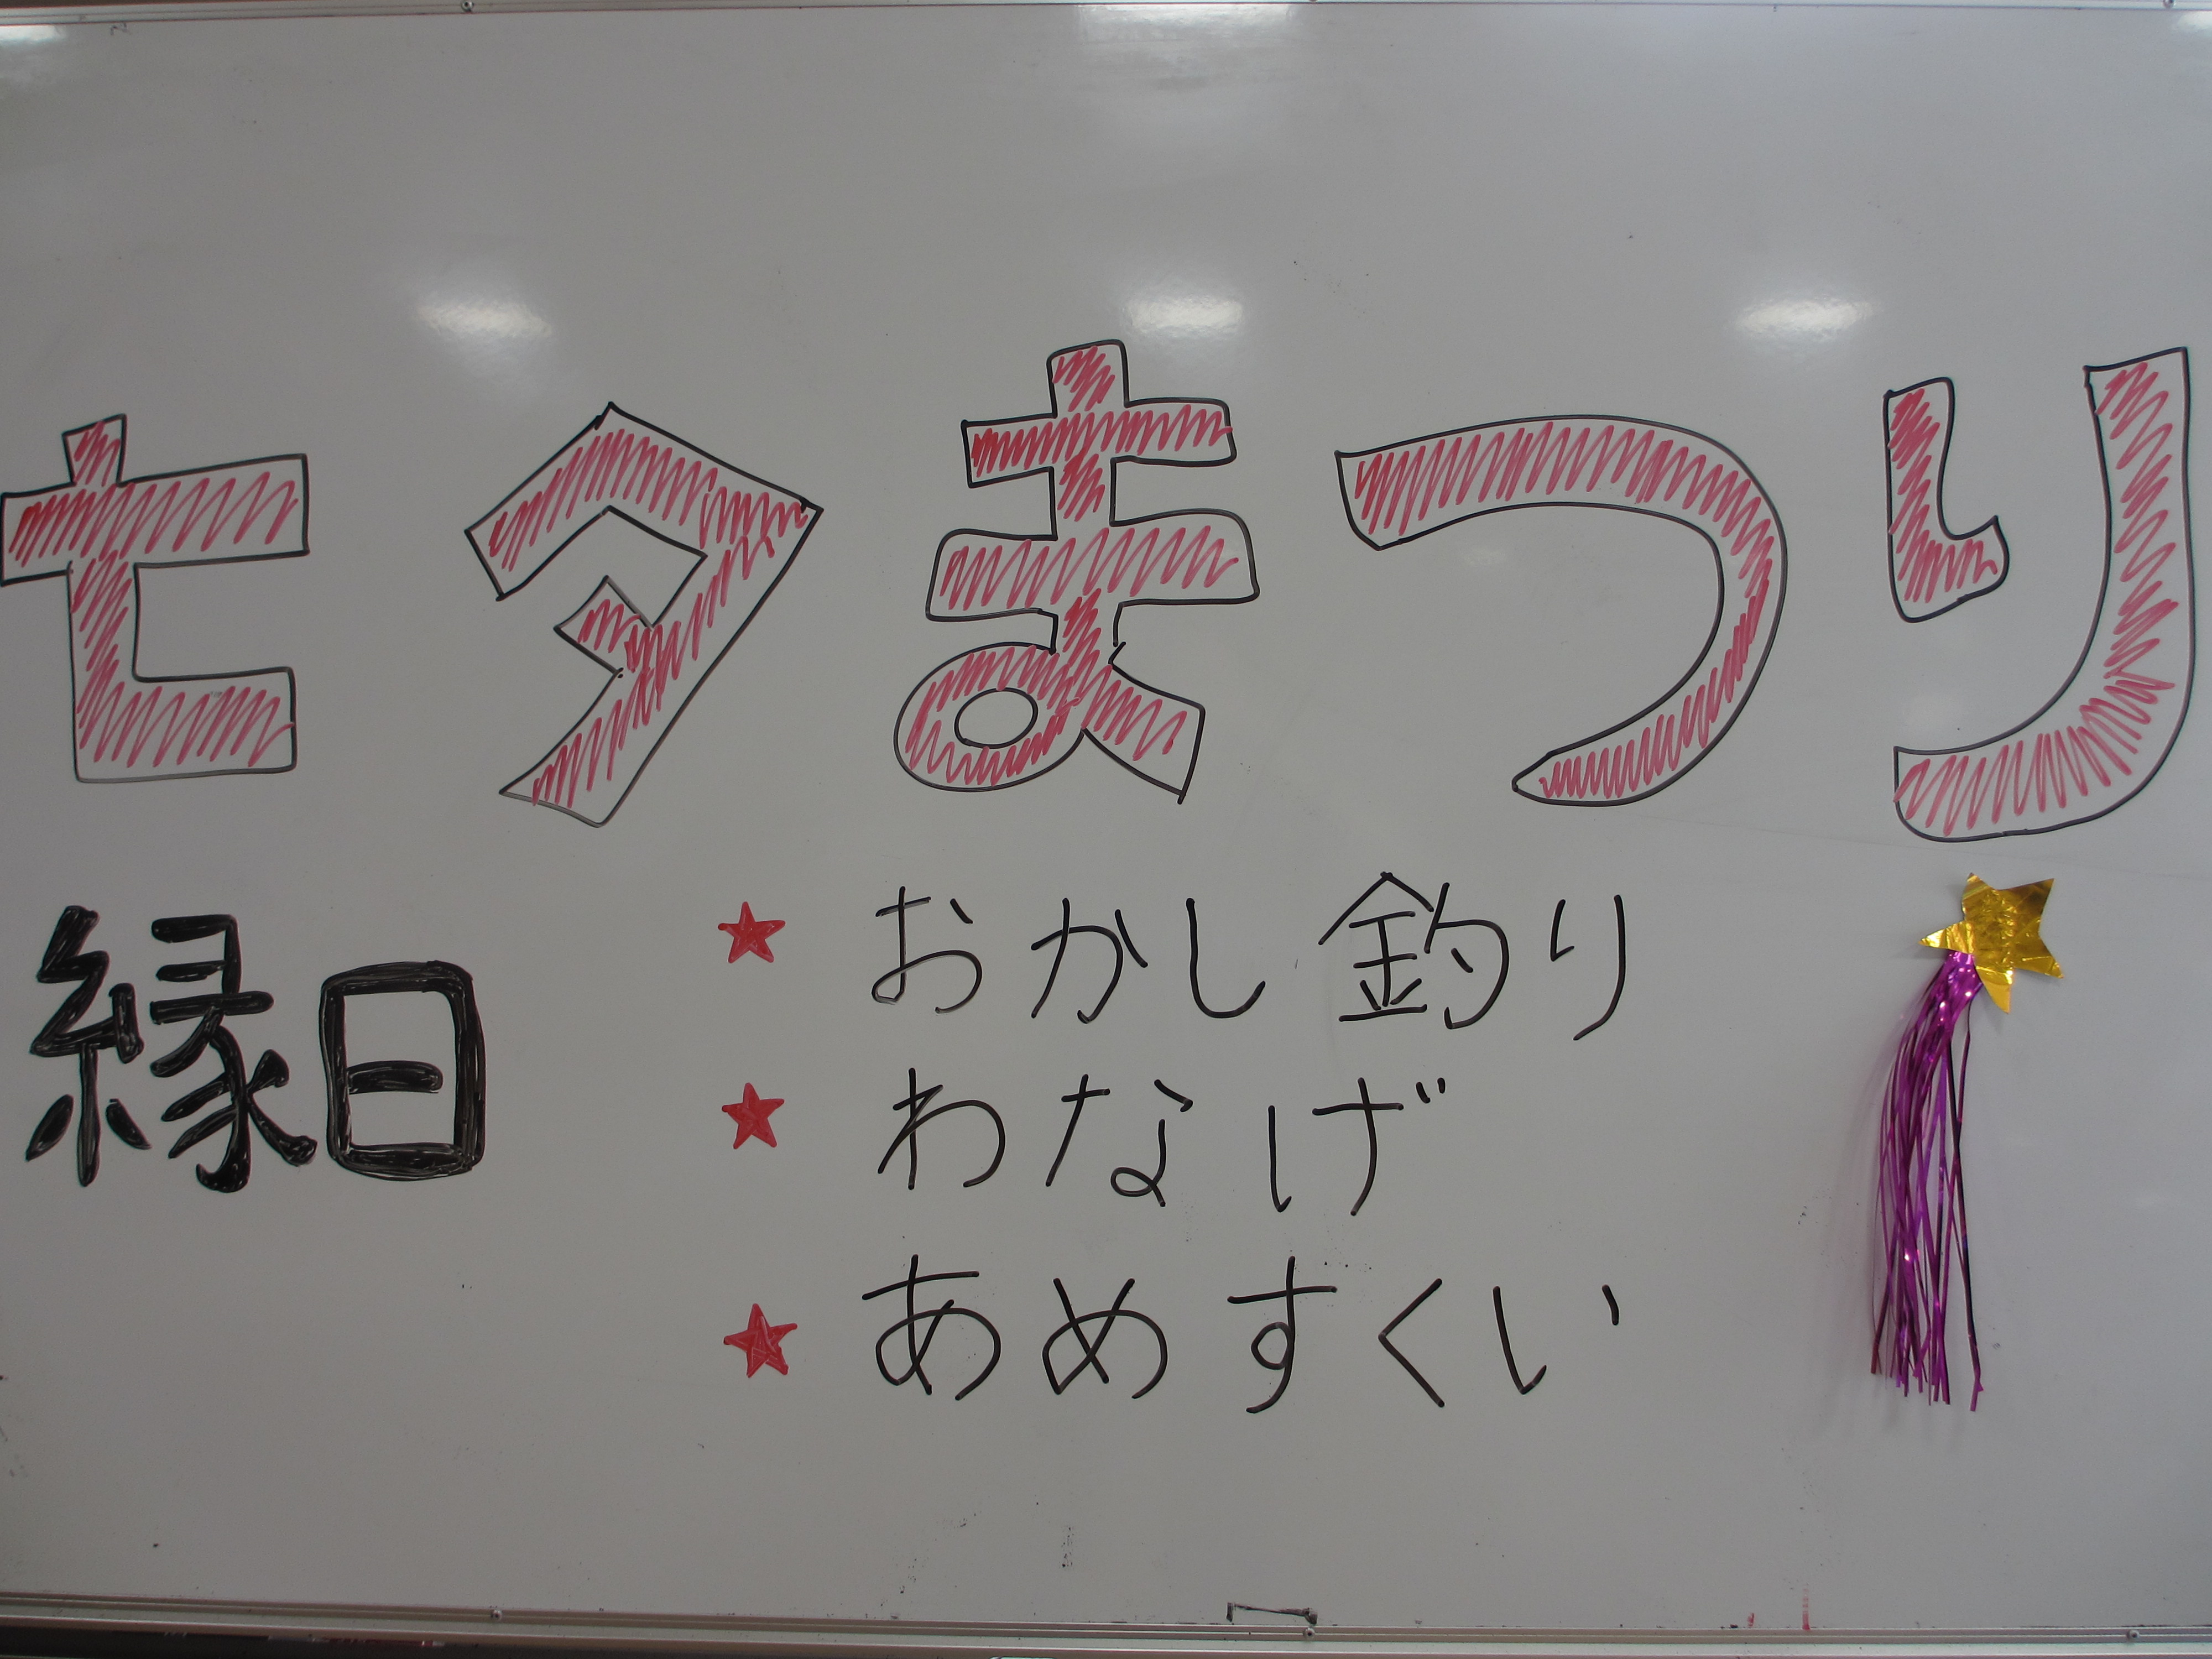 七夕まつり
縁日
★ おかし釣り
★ わなげ
★ あめすくい